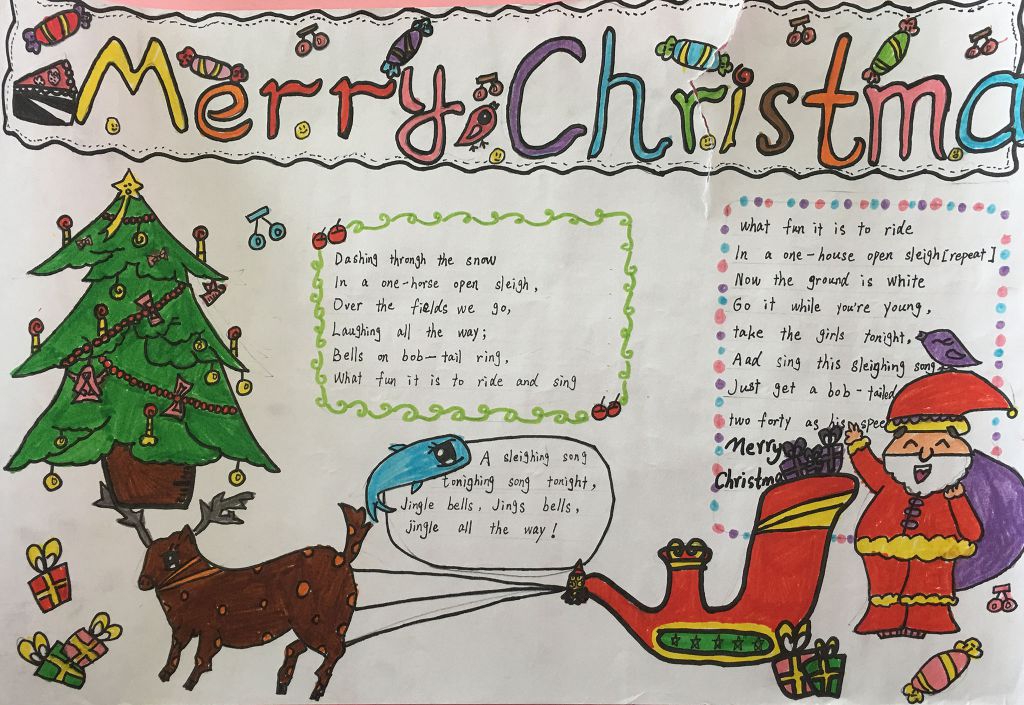 Merry Christma
Dashing throngh the snow
In a one-horse open sleigh,
Over the fields we go,
Laughing all the way;
Bells on bob-tail ring,
What fun it is to ride and sing
what fun it is to ride
In a one-house open sleigh[repeat]
Now the ground is white
Go it while you're young,
take the girls tonight,
Aad sing this sleighing song
Just get a bob-tailed
two forty as his spee
Merry
Christma
A sleighing song
tonighing song tonight,
Jingle bells, Jings bells,
jingle all the way!